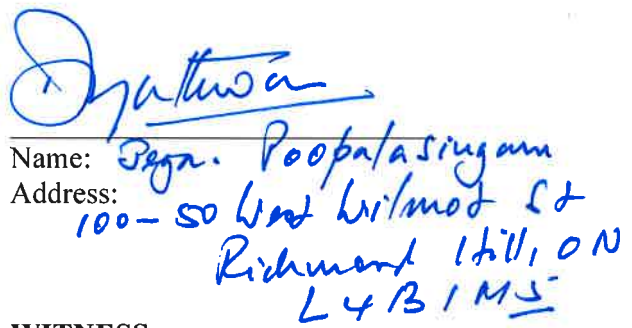 Name: Jega. Poopalasingam
Address:
100-50 West Wilmot St
Richmond Hill, ON
L4B1M5
WITNESS